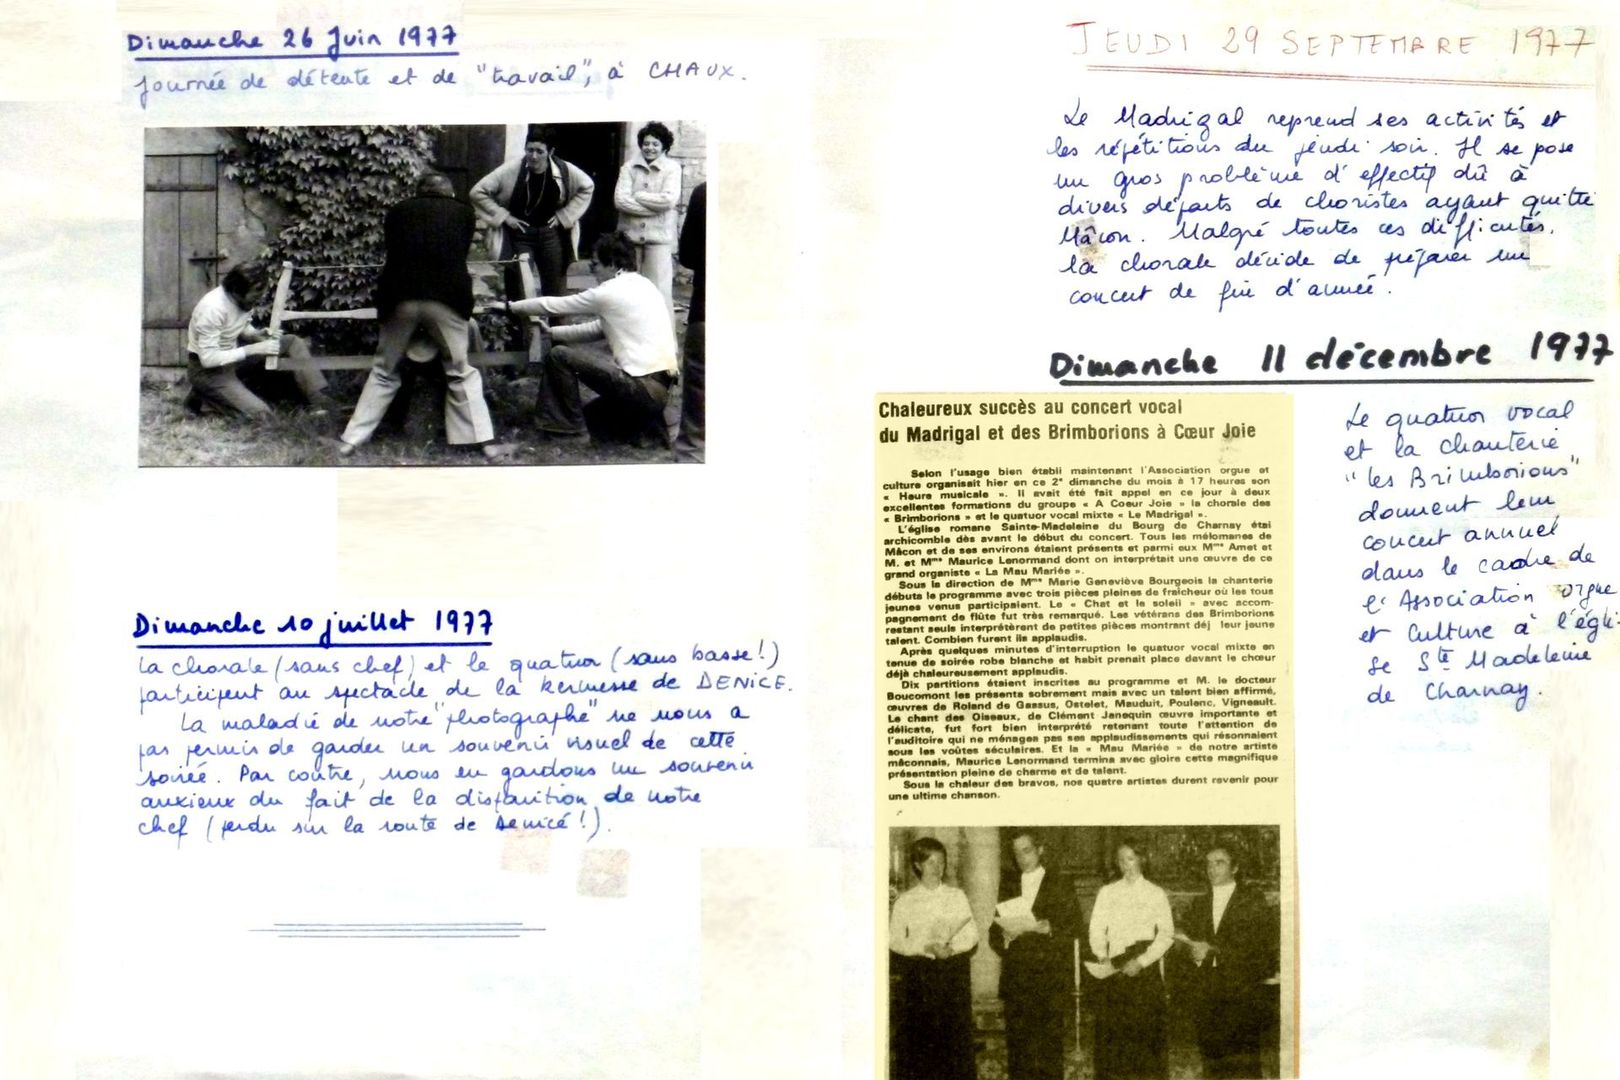 Dimanche 26 Juin 1977
Journée de détente et de "travail", à CHAUX.
Dimanche 10 juillet 1977
La chorale (sans chef) et le quatuor (sans basse!)
participent au spectacle de la kermesse de DENICE.
La maladie de notre "photographe" ne nous a
pas permis de garder un souvenir visuel de cette
soirée. Par contre, nous en gardons un souvenir
anxieux du fait de la disparition de notre
chef (perdu sur la route de Denicé!).
JEUDI 29 SEPTEMBRE 1977
Le Madrigal reprend ses activités et
les répétitions du jeudi soir. Il se pose
un gros problème d'effectif dû à
divers départs de choristes ayant quitté
Mâcon. Malgré toutes ces difficutés,
la chorale décide de préparer un
concert de fin d'année.
Dimanche 11 décembre 1977
Chaleureux succès au concert vocal
du Madrigal et des Brimborions à Cœur Joie
Selon l'usage bien établi maintenant l'Association orgue et
culture organisait hier en ce 2e dimanche du mois à 17 heures son
« Heure musicale ». Il avait été fait appel en ce jour à deux
excellentes formations du groupe « A Cœur Joie » la chorale des
« Brimborions » et le quatuor vocal mixte « Le Madrigal ».
L'église romane Sainte-Madeleine du Bourg de Charnay étai
archicomble dès avant le début du concert. Tous les mélomanes de
Mâcon et de ses environs étaient présents et parmi eux Mme Amet et
M. et Mme Maurice Lenormand dont on interprétait une œuvre de ce
grand organiste « La Mau Mariée ».
Sous la direction de Mme Marie Geneviève Bourgeois la chanterie
débuta le programme avec trois pièces pleines de fraîcheur où les tous
jeunes venus participaient. Le « Chat et le soleil » avec accom-
pagnement de flûte fut très remarqué. Les vétérans des Brimborions
restant seuls interprétèrent de petites pièces montrant déj leur jeune
talent. Combien furent ils applaudis.
Après quelques minutes d'interruption le quatuor vocal mixte en
tenue de soirée robe blanche et habit prenait place devant le chœur
déjà chaleureusement applaudis.
Dix partitions étaient inscrites au programme et M. le docteur
Boucomont les présenta sobrement mais avec un talent bien affirmé,
œuvres de Roland de Gassus, Ostelet, Mauduit, Poulenc, Vigneault.
Le chant des Oiseaux, de Clément Janequin œuvre importante et
délicate, fut fort bien interprété retenant toute l'attention de
l'auditoire qui ne ménagea pas ses applaudissements qui résonnaient
sous les voûtes séculaires. Et la « Mau Mariée » de notre artiste
mâconnais, Maurice Lenormand termina avec gloire cette magnifique
présentation pleine de charme et de talent.
Sous la chaleur des bravos, nos quatre artistes durent revenir pour
une ultime chanson.
Le quatuor vocal
et la chanterie
"les Brimborions"
donnent leur
concert annuel
dans le cadre de
l'Association orgue
et Culture à l'égli-
se Ste Madeleine
de Charnay.